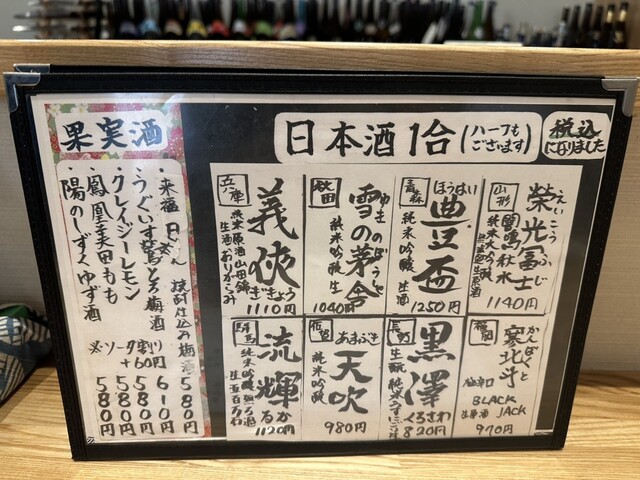 日本酒1合(ハーフもございます)
税込になりました
山形
栄光冨士
えいこうふじ
闇鳴秋水
純米大吟醸
無濾過生原酒
1140円
青森
豊盃
ほうはい
純米吟醸
生酒
1250円
秋田
雪の茅舎
ゆきのぼうしゃ
純米吟醸
生
1040円
義侠
ぎきょう
純米原酒山田錦
生酒おりがらみ
1110円
福岡
寒北斗
かんほくと
極辛口
BLACK
JACK
生原酒
970円
長野
黒澤
くろさわ
生酛
純米うすにごり生
820円
佐賀
天吹
あまぶき
純米吟醸
980円
群馬
流輝
るか
純米吟醸無ろ過
生
五百万石
1120円
果実酒
・来福 日本酒仕込み梅酒 580円
・うぐいすとろ梅酒 610円
・クレイジーレモン 580円
・鳳凰美田もも 580円
・陽のしずくゆず酒 580円
※ソーダ割り
+60円